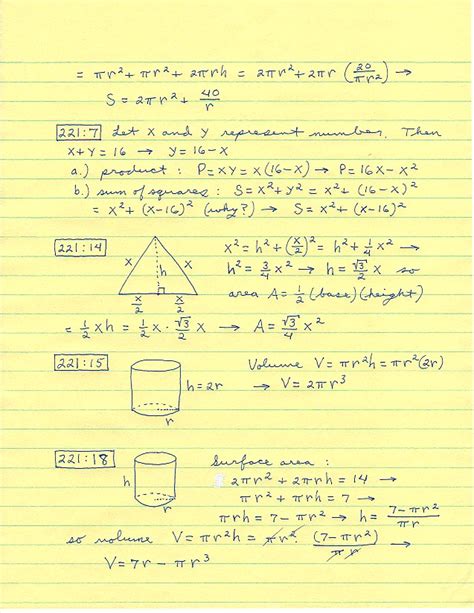 = πr² + πr² + 2πrh = 2πr² + 2πr (20/πr²) →
S = 2πr² + 40/r
221:7 Let x and y represent number. Then
x + y = 16 → y = 16 - x
a.) product : P = xy = x(16-x) → P = 16x - x²
b.) sum of squares : S = x² + y² = x² + (16-x)²
= x² + (x-16)² (why?) → S = x² + (x-16)²
221:14 x² = h² + (x/2)² = h² + 1/4 x² →
x x h h² = 3/4 x² → h = √3/2 x so
x/2 x/2 area A = 1/2 (base)(height)
= 1/2 xh = 1/2 x · √3/2 x → A = √3/4 x²
221:15 Volume V = πr²h = πr²(2r)
h = 2r → V = 2πr³
r
221:18 Surface area :
h 2πr² + 2πrh = 14 →
πr² + πrh = 7 →
r πrh = 7 - πr² → h = 7-πr²/πr
so volume V = πr²h = πr² · (7-πr²)/πr →
V = 7r - πr³